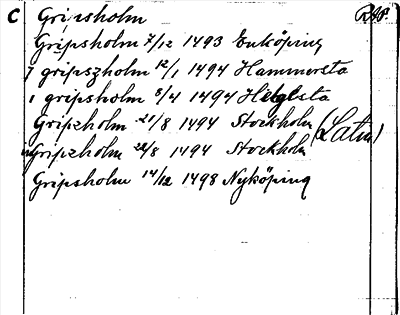 C Gripsholm RAP.
Gripsholm 7/12 1493 Enköping
J gripszholm 12/1 1494 Hammersta
i gripsholm 8/4 1494 Helgesta
Gripzholm 21/8 1494 Stockholm (Latin)
Gripzholm 22/8 1494 Stockholm
Gripsholm 14/12 1498 Nyköping